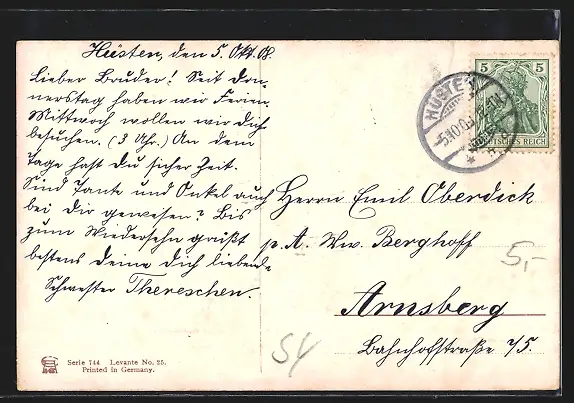 Hüsten, den 5. Okt. 08.
Lieber Bruder! Seit Don-
nerstag haben wir Ferien.
Mittwoch wollen wir dich
besuchen. (3 Uhr.) An dem
Tage hast du sicher Zeit.
Sind Tante und Onkel auch
bei dir gewesen? Bis
zum Wiedersehn grüßt
bestens deine dich liebende
Schwester Thereschen.
Serie 744. Levante No. 25.
Printed in Germany.
5
DEUTSCHES REICH
HÜSTEN
Herrn Emil Oberdick
p. A. Ww. Berghoff
Arnsberg
Bahnhofstraße 75
5,-
54